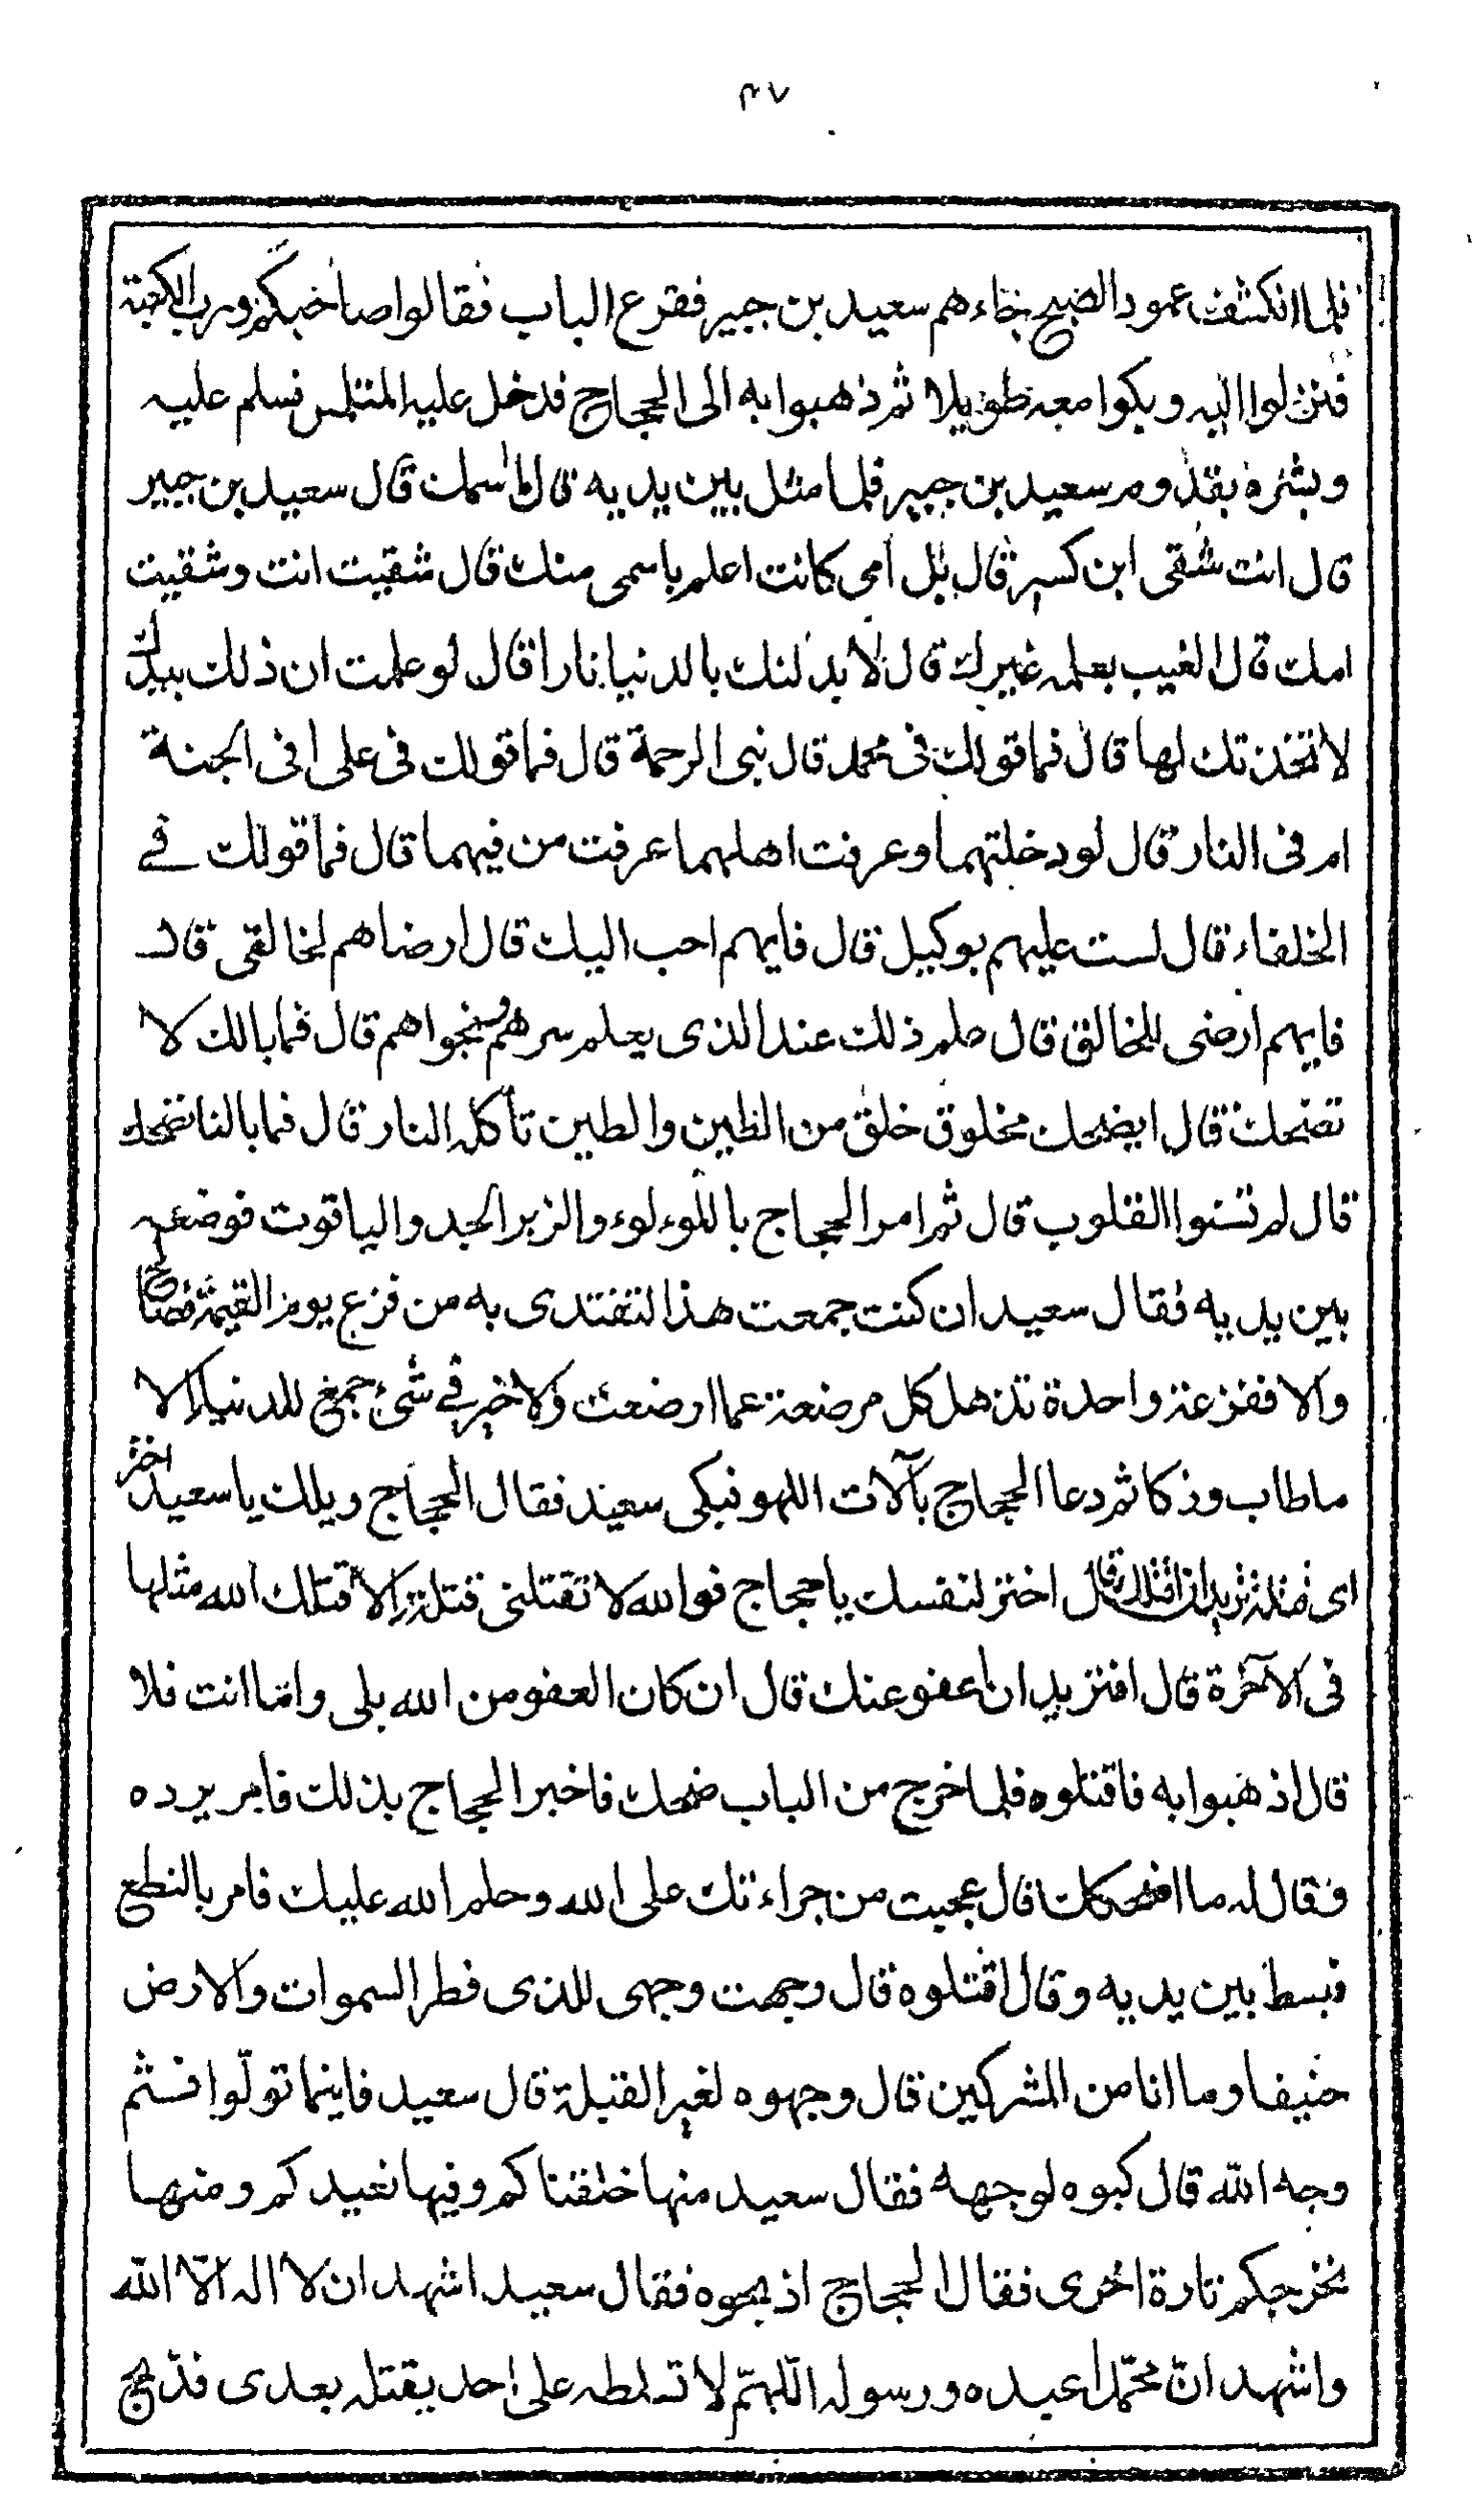 ٣٧
فلما انكشف عمود الصبح جاءهم سعيد بن جبير فقرع الباب فقالوا صاحبكم ورب الكعبة
فنزلوا اليه وبكوا معه طويلا ثم ذهبوا به الى الحجاج فدخل عليه المتلمس فسلم عليه
وبشره بقدوم سعيد بن جبير فلما مثل بين يديه قال ما اسمك قال سعيد بن جبير
قال انت شقى ابن كسير قال بل امى كانت اعلم باسمى منك قال شقيت انت وشقيت
امك قال الغيب يعلمه غيرك قال لابدلنك بالدنيا نارا قال لو علمت ان ذلك بيدك
لاتخذتك لها قال فما قولك فى محمد قال نبى الرحمة قال فما قولك فى على افى الجنة
ام فى النار قال لو دخلتهما وعرفت اهلهما عرفت من فيهما قال فما قولك فے
الخلفاء قال لست عليهم بوكيل قال فايهم احب اليك قال ارضاهم لخالقى قال
فايهم ارضى للخالق قال علم ذلك عند الذى يعلم سرهم ونجواهم قال فما بالك لا
تضحك قال ايضحك مخلوق خلق من الطين والطين تأكله النار قال فما بالنا نضحك
قال لم تستوا القلوب قال ثم امر الحجاج باللوءلوء والزبرالجد والياقوت فوضعه
بين يديه فقال سعيد ان كنت جمعت هذا لتفتدى به من فزع يوم القيمة فصالح
والا ففزعة واحدة تذهل كل مرضعة عما ارضعت ولا خير فے شئ جمع للدنيا الا
ما طاب وزكا ثم دعا الحجاج بآلات اللهو فبكى سعيد فقال الحجاج ويلك يا سعيد اختر
اى قتلة تريد ان اقتلك قال اختر لنفسك يا حجاج فوالله لا تقتلنى قتلة الا قتلك الله مثلها
فى الآخرة قال افتريد ان اعفو عنك قال ان كان العفو من الله بلى واما انت فلا
قال اذهبوا به فاقتلوه فلما اخرج من الباب ضحك فاخبر الحجاج بذلك فامر برده
فقال له ما اضحكك قال عجبت من جراءتك على الله وحلم الله عليك فامر بالنطع
فبسط بين يديه وقال اقتلوه قال وجهت وجهى للذى فطر السموات والارض
حنيفا وما انا من المشركين قال وجهوه لغير القبلة قال سعيد فاينما تولّوا فثم
وجه الله قال كبوه لوجهه فقال سعيد منها خلقناكم وفيها نعيدكم ومنها
نخرجكم تارة اخرى فقال الحجاج اذبحوه فقال سعيد اشهد ان لا اله الّا الله
واشهد انّ محمّدا عبده ورسوله اللّهمّ لا تسلطه على احد يقتله بعدى فذبح